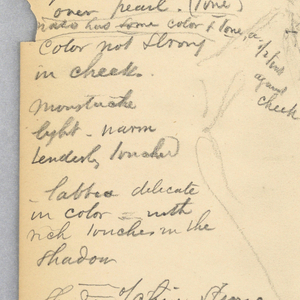 over pearl. (Tone)
has some color & tone, a
1/2 tone
against
cheek
Color not strong
in cheek.
moustache
light - warm
tenderly touched
delicate
in color - with
rich touches in the
shadow